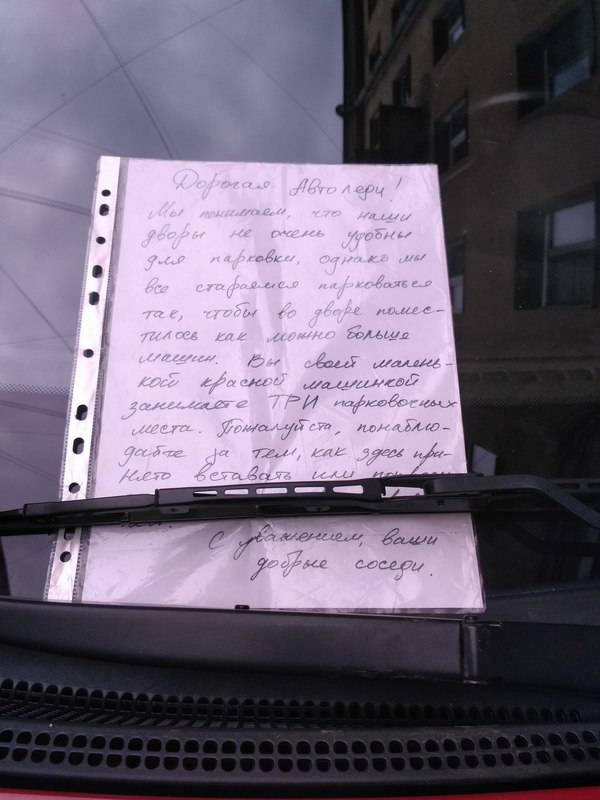 Дорогая Автоледи!
Мы понимаем, что наши
дворы не очень удобны
для парковки, однако мы
все стараемся парковаться
так, чтобы во дворе помес-
тилось как можно больше
машин. Вы своей малень-
кой красной машинкой
занимаете ТРИ парковочных
места. Пожалуйста, понаблю-
дайте за тем, как здесь при-
нято вставать или
С уважением, ваши
добрые соседи.